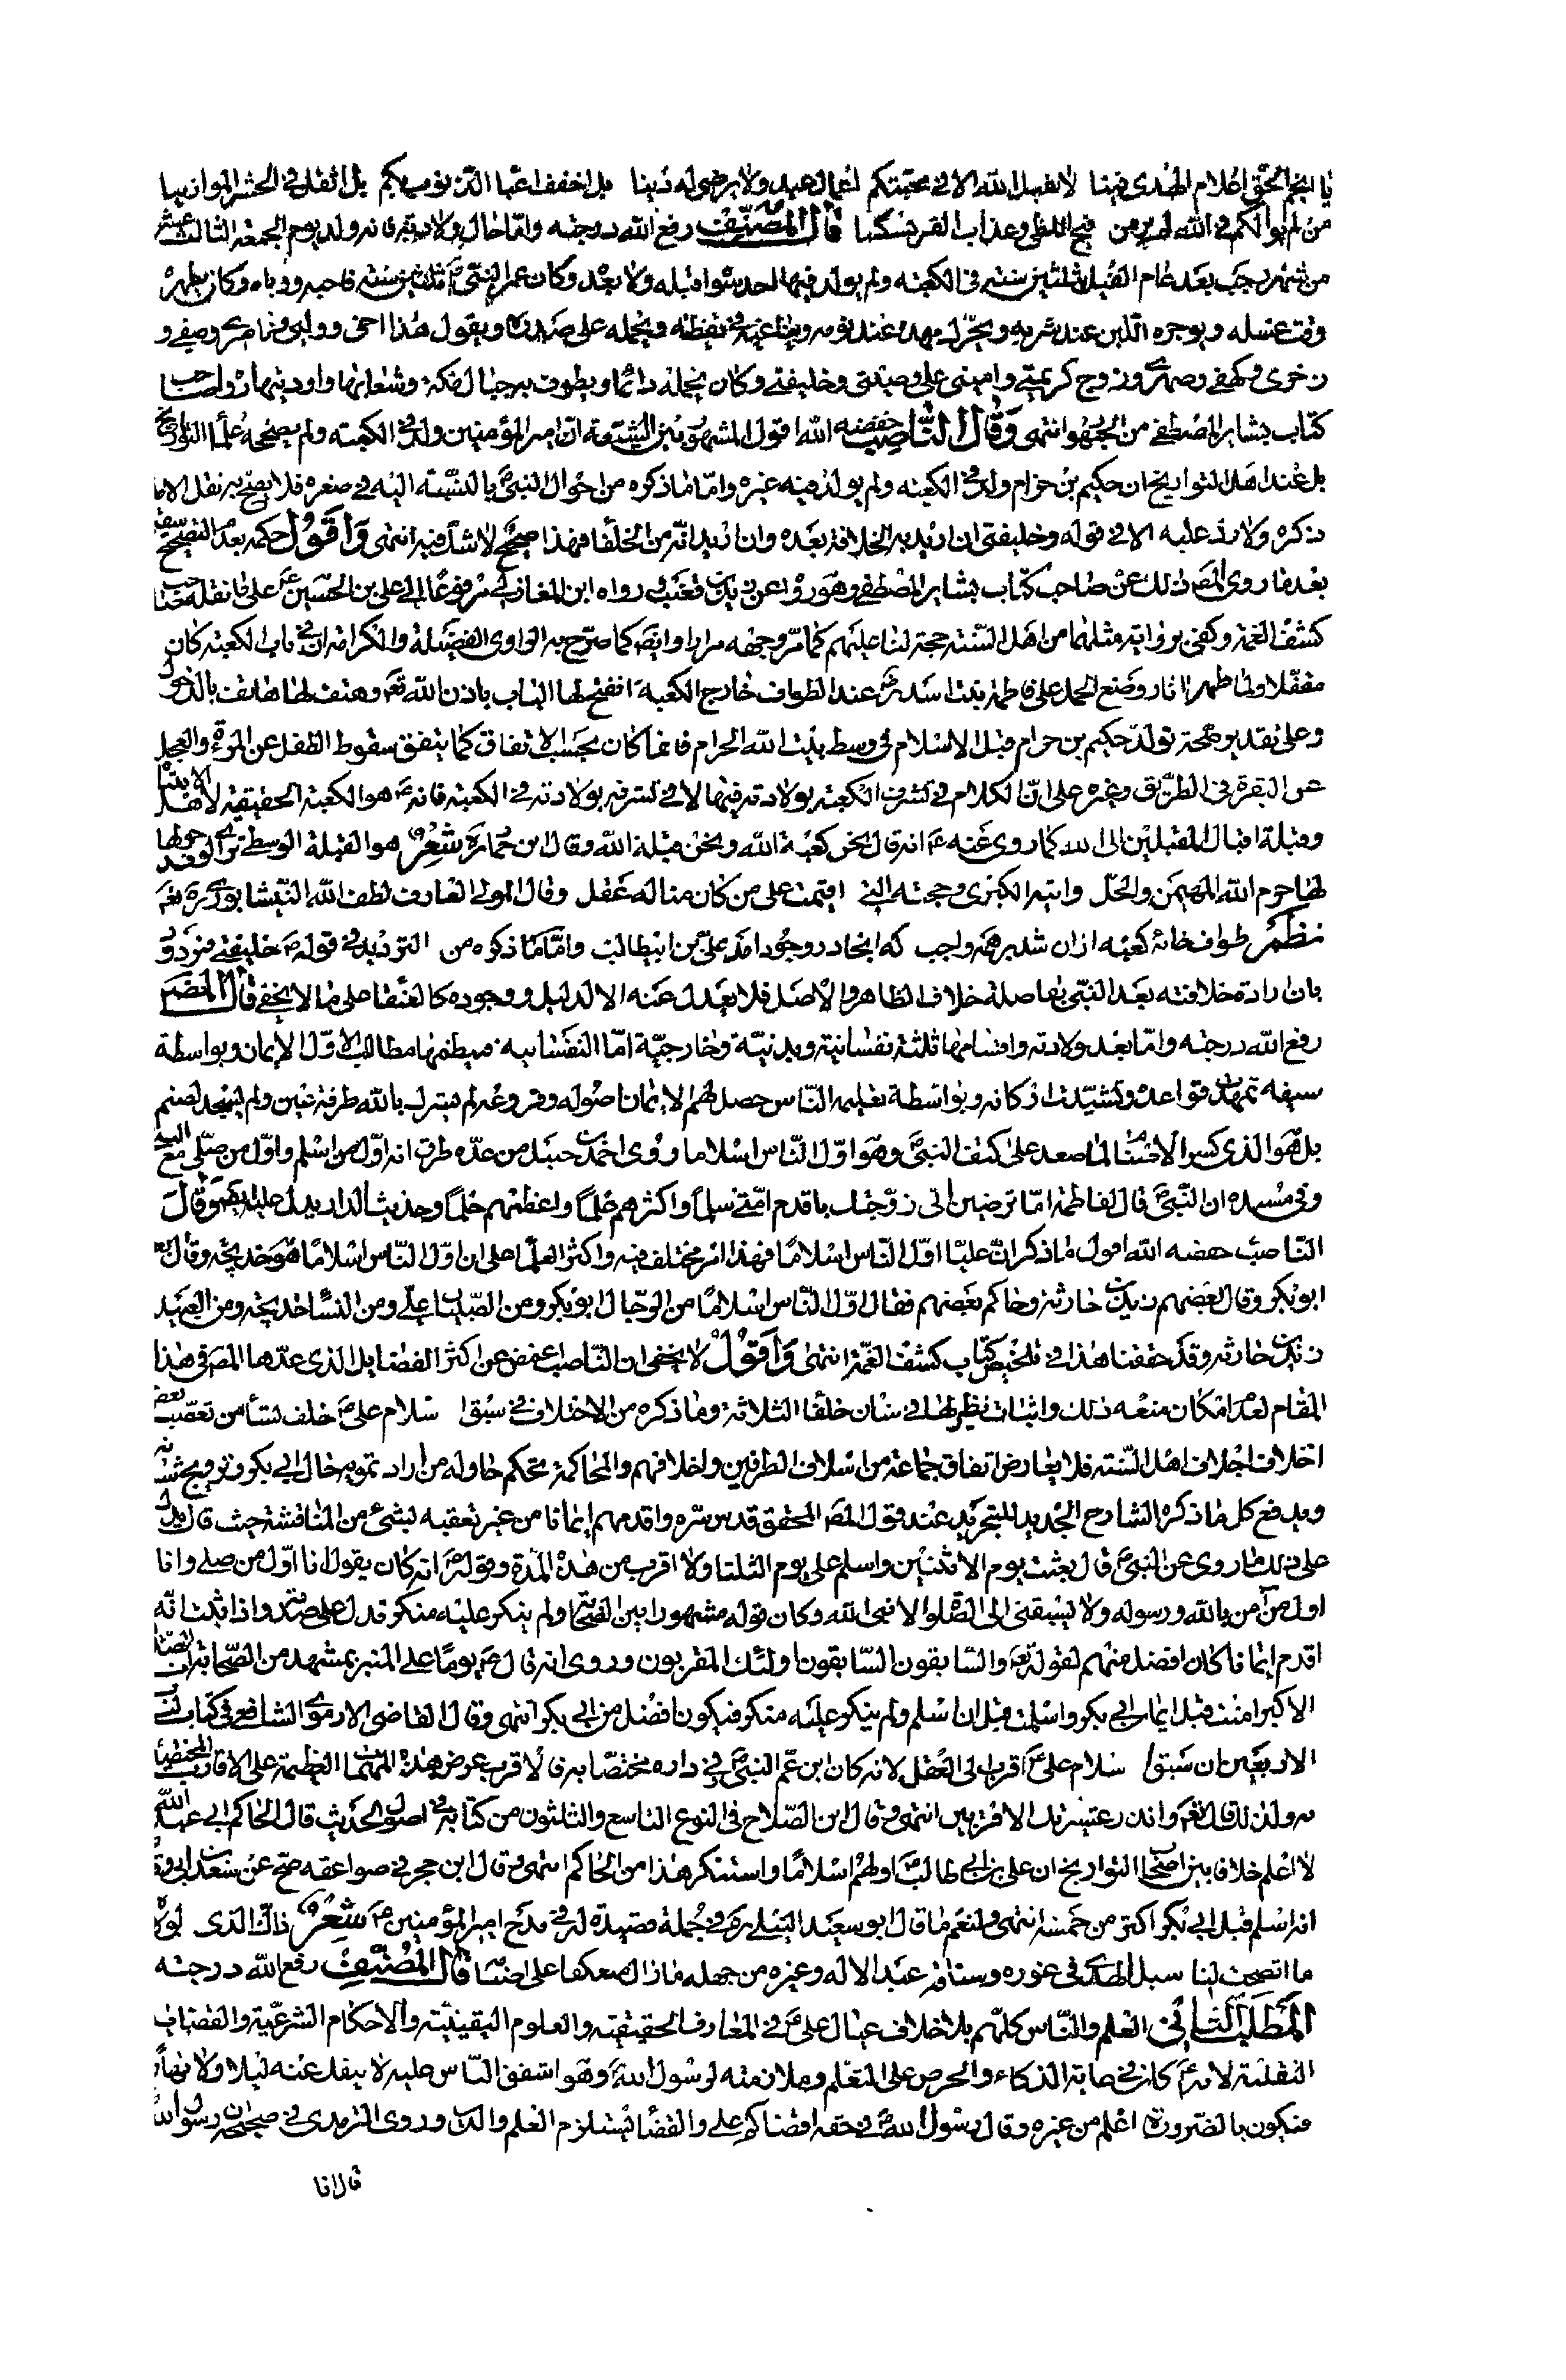 يا انجم الحق اعلام الهدى فينا لا يقبل الله الا في محبتكم اعمال عبد ولا يرضى له دينا بل اخفف اعباء الذنوب بكم بل اثقل في الحشر الموازينا
من لم يوالكم في الله لم ير من قيح اللظى وعذاب القبر تسكينا قال المصنف رفع الله درجته واما حال ولادته فانه ولد يوم الجمعة الثالث عشر
من شهر رجب بعد عام الفيل بثلثين سنة في الكعبة ولم يولد فيها احد سواه قبله ولا بعده وكان عمر النبي ص ثلثين سنة فاحبه ورباه وكان يطهره
وقت غسله ويوجره اللبن عند شربه ويحرك مهده عند نومه ويناغيه في يقظته ويحمله على صدره ويقول هذا اخي ووليي وناصري وصفيي و
ذخري وكهفي وصهري وزوج كريمتي واميني على وصيتي وخليفتي وكان يحمله دائما ويطوف به جبال مكة وشعابها واوديتها رواه صاحب
كتاب بشاير المصطفى من الجمهور انتهى وقال الناصب خفضه الله اقول المشهور بين الشيعة ان امير المؤمنين ولد في الكعبة ولم يصححه علماء التواريخ
بل عند اهل التواريخ ان حكيم بن حزام ولد في الكعبة ولم يولد فيه غيره واما ما ذكره من احوال النبي ص بالنسبة اليه في صغره فلا يصح به نقل الا ما
ذكره ولا رد عليه الا في قوله وخليفتي ان اريد به الخلافة بعده وان اريد انه من الخلفاء فهذا صحيح لا شك فيه انتهى واقول حكمه بعد التصحيح سقيم
بعد ما روى المص ذلك عن صاحب كتاب بشاير المصطفى وهو رواه عن يزيد بن قعنب ورواه ابن المغازلي مرفوعا الى علي بن الحسين ع على ما نقله صاحب
كشف الغمة وكفى برواية مثلهما من اهل السنة حجة لنا عليهم كما مر وجهه مرارا وايض كما صرح به الراوي الفضيلة والكرامة ان في باب الكعبة كان
مقفلا ولما ظهر اثار وضع الحمل على فاطمة بنت اسد رض عند الطواف خارج الكعبة انفتح لها الباب باذن الله تع وهتف لها هاتف بالدخول
وعلى تقدير صحة تولد حكيم بن حزام قبل الاسلام في وسط بيت الله الحرام فانما كان بحسب الاتفاق كما يتفق سقوط الطفل عن المرءة والعجل
عن البقرة في الطريق وغيره على ان الكلام في تشرف الكعبة بولادته فيها لا في تشرفه بولادته في الكعبة فانه ع هو الكعبة الحقيقة لاهل الابتلاء
وقبلة اقبال المقبلين الى الله كما روى عنه ع انه قال نحن كعبة الله ونحن قبلة الله وقال ابن حماد ره شعر هو القبلة الوسطى ترى الوفد حولها
لها حرم الله المهيمن والحل وايته الكبرى وحجته التي اقيمت على من كان مناله عقل وقال المولى العارف لطف الله النيشابوري ره
نظم طواف خانهٔ كعبه ازان شد بر همه واجب كه انجا در وجود امد علي بن ابيطالب واما ما ذكره من الترديد في قوله ص خليفتي فمردود
بان ارادة خلافته بعد النبي بفاصلة خلاف الظاهر والاصل فلا يعدل عنه الا لدليل ووجوده كالعنقاء على ما لا يخفى قال المصنف
رفع الله درجته واما بعد ولادته واقسامها ثلثة نفسانية وبدنية وخارجية اما النفسانيه فينظمها مطالب الاول الايمان وبواسطة
سيفه تمهدت قواعده وتشيدت اركانه وبواسطة تعليمه الناس حصل لهم الايمان اصوله وفروعه لم يشرك بالله طرفة عين ولم يسجد لصنم
بل هو الذي كسر الاصنام لما صعد على كتف النبي ص وهو اول الناس اسلاما روى احمد بن حنبل من عدة طرق انه اول من اسلم واول من صلى مع النبي
وفي مسنده ان النبي ص قال لفاطمة اما ترضين اني زوجتك باقدم امتي سلما واكثرهم علما واعظمهم حلما وحديث الدار يدل عليه انتهى وقال
الناصب خفضه الله اقول ما ذكر ان عليا اول الناس اسلاما فهذا امر مختلف فيه واكثر العلماء على ان اول الناس اسلاما هو خديجة وقال بعضهم
ابو بكر وقال بعضهم زيد بن حارثه وحاكم بعضهم فقال اول الناس اسلاما من الرجال ابو بكر ومن الصبيان علي ومن النساء خديجة ومن العبيد
زيد بن حارثه وقد حققنا هذا في تلخيص كتاب كشف الغمة انتهى واقول لا يخفى ان الناصب اغمض عن اكثر الفضايل الذي عدها المص في هذا
المقام لعدم امكان منعه ذلك واثبات نظير لها في شان خلفاء الثلاثة وما ذكره من الاختلاف في سبق اسلام علي ع خلف نشأ من تعصب بعض
اخلاف اجلاف اهل السنة فلا يعارض اتفاق جماعة من اسلاف الطرفين واخلافهم والمحاكمة تحكم حاوله من اراد تمويه حال ابي بكر وترويج شانه
ويدفع كل ما ذكره الشارح الجديد للتجريد عند قول المص المحقق قدس سره واقدمهم ايمانا من غير تعقبه بشيء من المناقشة حيث قال يدل
على ذلك ما روى عن النبي ص قال بعثت يوم الاثنين واسلم علي يوم الثلثا ولا اقرب من هذه المدة وقوله ع انه كان يقول انا اول من صلى وانا
اول من آمن بالله ورسوله ولا يسبقني الى الصلوة الا نبي الله وكان قوله مشهورا بين الصحابة ولم ينكر عليه منكر فدل على صدقه واذا ثبت انه
اقدم ايمانا كان افضل منهم لقوله تع والسابقون السابقون اولئك المقربون وروى انه قال ع يوما على المنبر بمشهد من الصحابة انا الصديق
الاكبر امنت قبل ايمان ابي بكر واسلمت قبل ان اسلم ولم ينكر عليه منكر فيكون افضل من ابي بكر انتهى وقال القاضي الارموي الشافعي في كتاب
الاربعين ان سبق اسلام علي ع اقرب الى العقل لانه كان ابن عم النبي ص وفي داره مختصا به فالاقرب عرض هذه المهمات العظيمة على الاقارب المختصين
به ولذلك قال تع وانذر عشيرتك الاقربين انتهى وقال ابن الصلاح في النوع التاسع والثلثون من كتابه في اصول الحديث قال الحاكم ابي عبد الله
لا اعلم خلافا بين اصحاب التواريخ ان علي بن ابي طالب اولهم اسلاما واستنكر هذا من الحاكم انتهى وقال ابن حجر في صواعقه صح عن سعد بن ابي وقاص
انه اسلم قبل ابي بكر اكثر من خمسة انتهى ولنعم ما قال ابو سعيد في جملة قصيدة له في مدح امير المؤمنين ع شعر ذاك الذي لولاه
ما اتضحت لنا سبل الهدى في غوره وسنامه عبد الاله وغيره من جهله ما زال معكفا على اصنامه قال المصنف رفع الله درجته
المطلب الثاني العلم والناس كلهم بلا خلاف عيال علي ع في المعارف الحقيقية والعلوم اليقينية والاحكام الشرعية والقضايا
النقلية لانه ع كان في غاية الذكاء والحرص على التعلم وملازمته لرسول الله ص وهو اشفق الناس عليه لا ينفك عنه ليلا ولا نهارا
فيكون بالضرورة اعلم من غيره وقال رسول الله ص في حقه اقضاكم علي والقضاء يستلزم العلم والدين وروى الترمذي في صحيحه ان رسول الله
قال انا